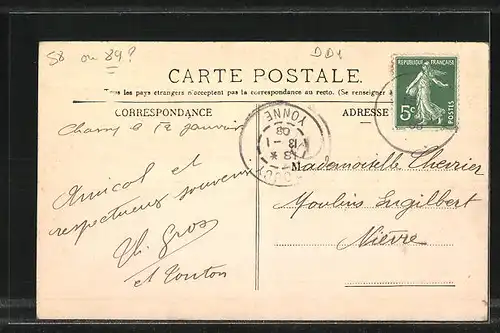 58 ou 89?
DD1
CARTE POSTALE.
Tous les pays étrangers n'acceptent pas la correspondance au recto. (Se renseigner à
CORRESPONDANCE
ADRESSE
REPUBLIQUE FRANÇAISE
5c
POSTES
YONNE
13 - 1
08
le 12 janvier
Amical et
respectueux souvenir
Ch. Gros
et Tonton
Mademoiselle Chevrier
Moulins Engilbert
Nièvre